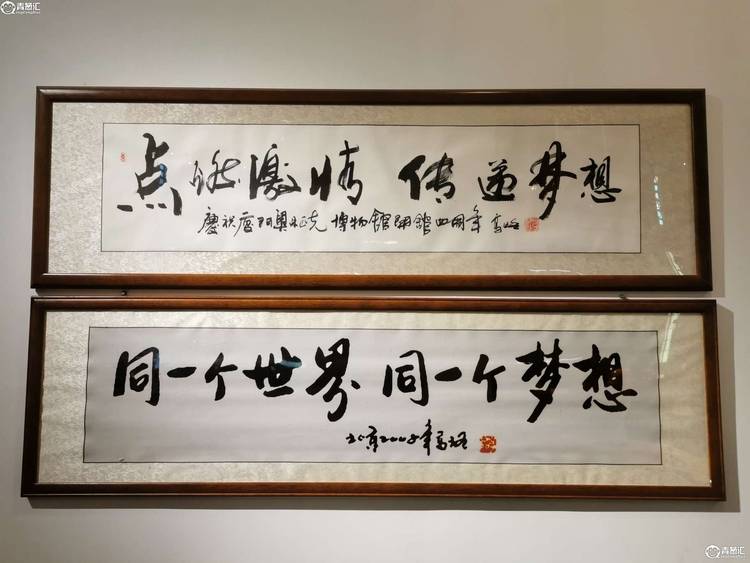 青葱汇
点燃激情 传递梦想
慶祝厦门奥林匹克博物館開館四周年
同一个世界 同一个梦想
北京2008年
青葱汇